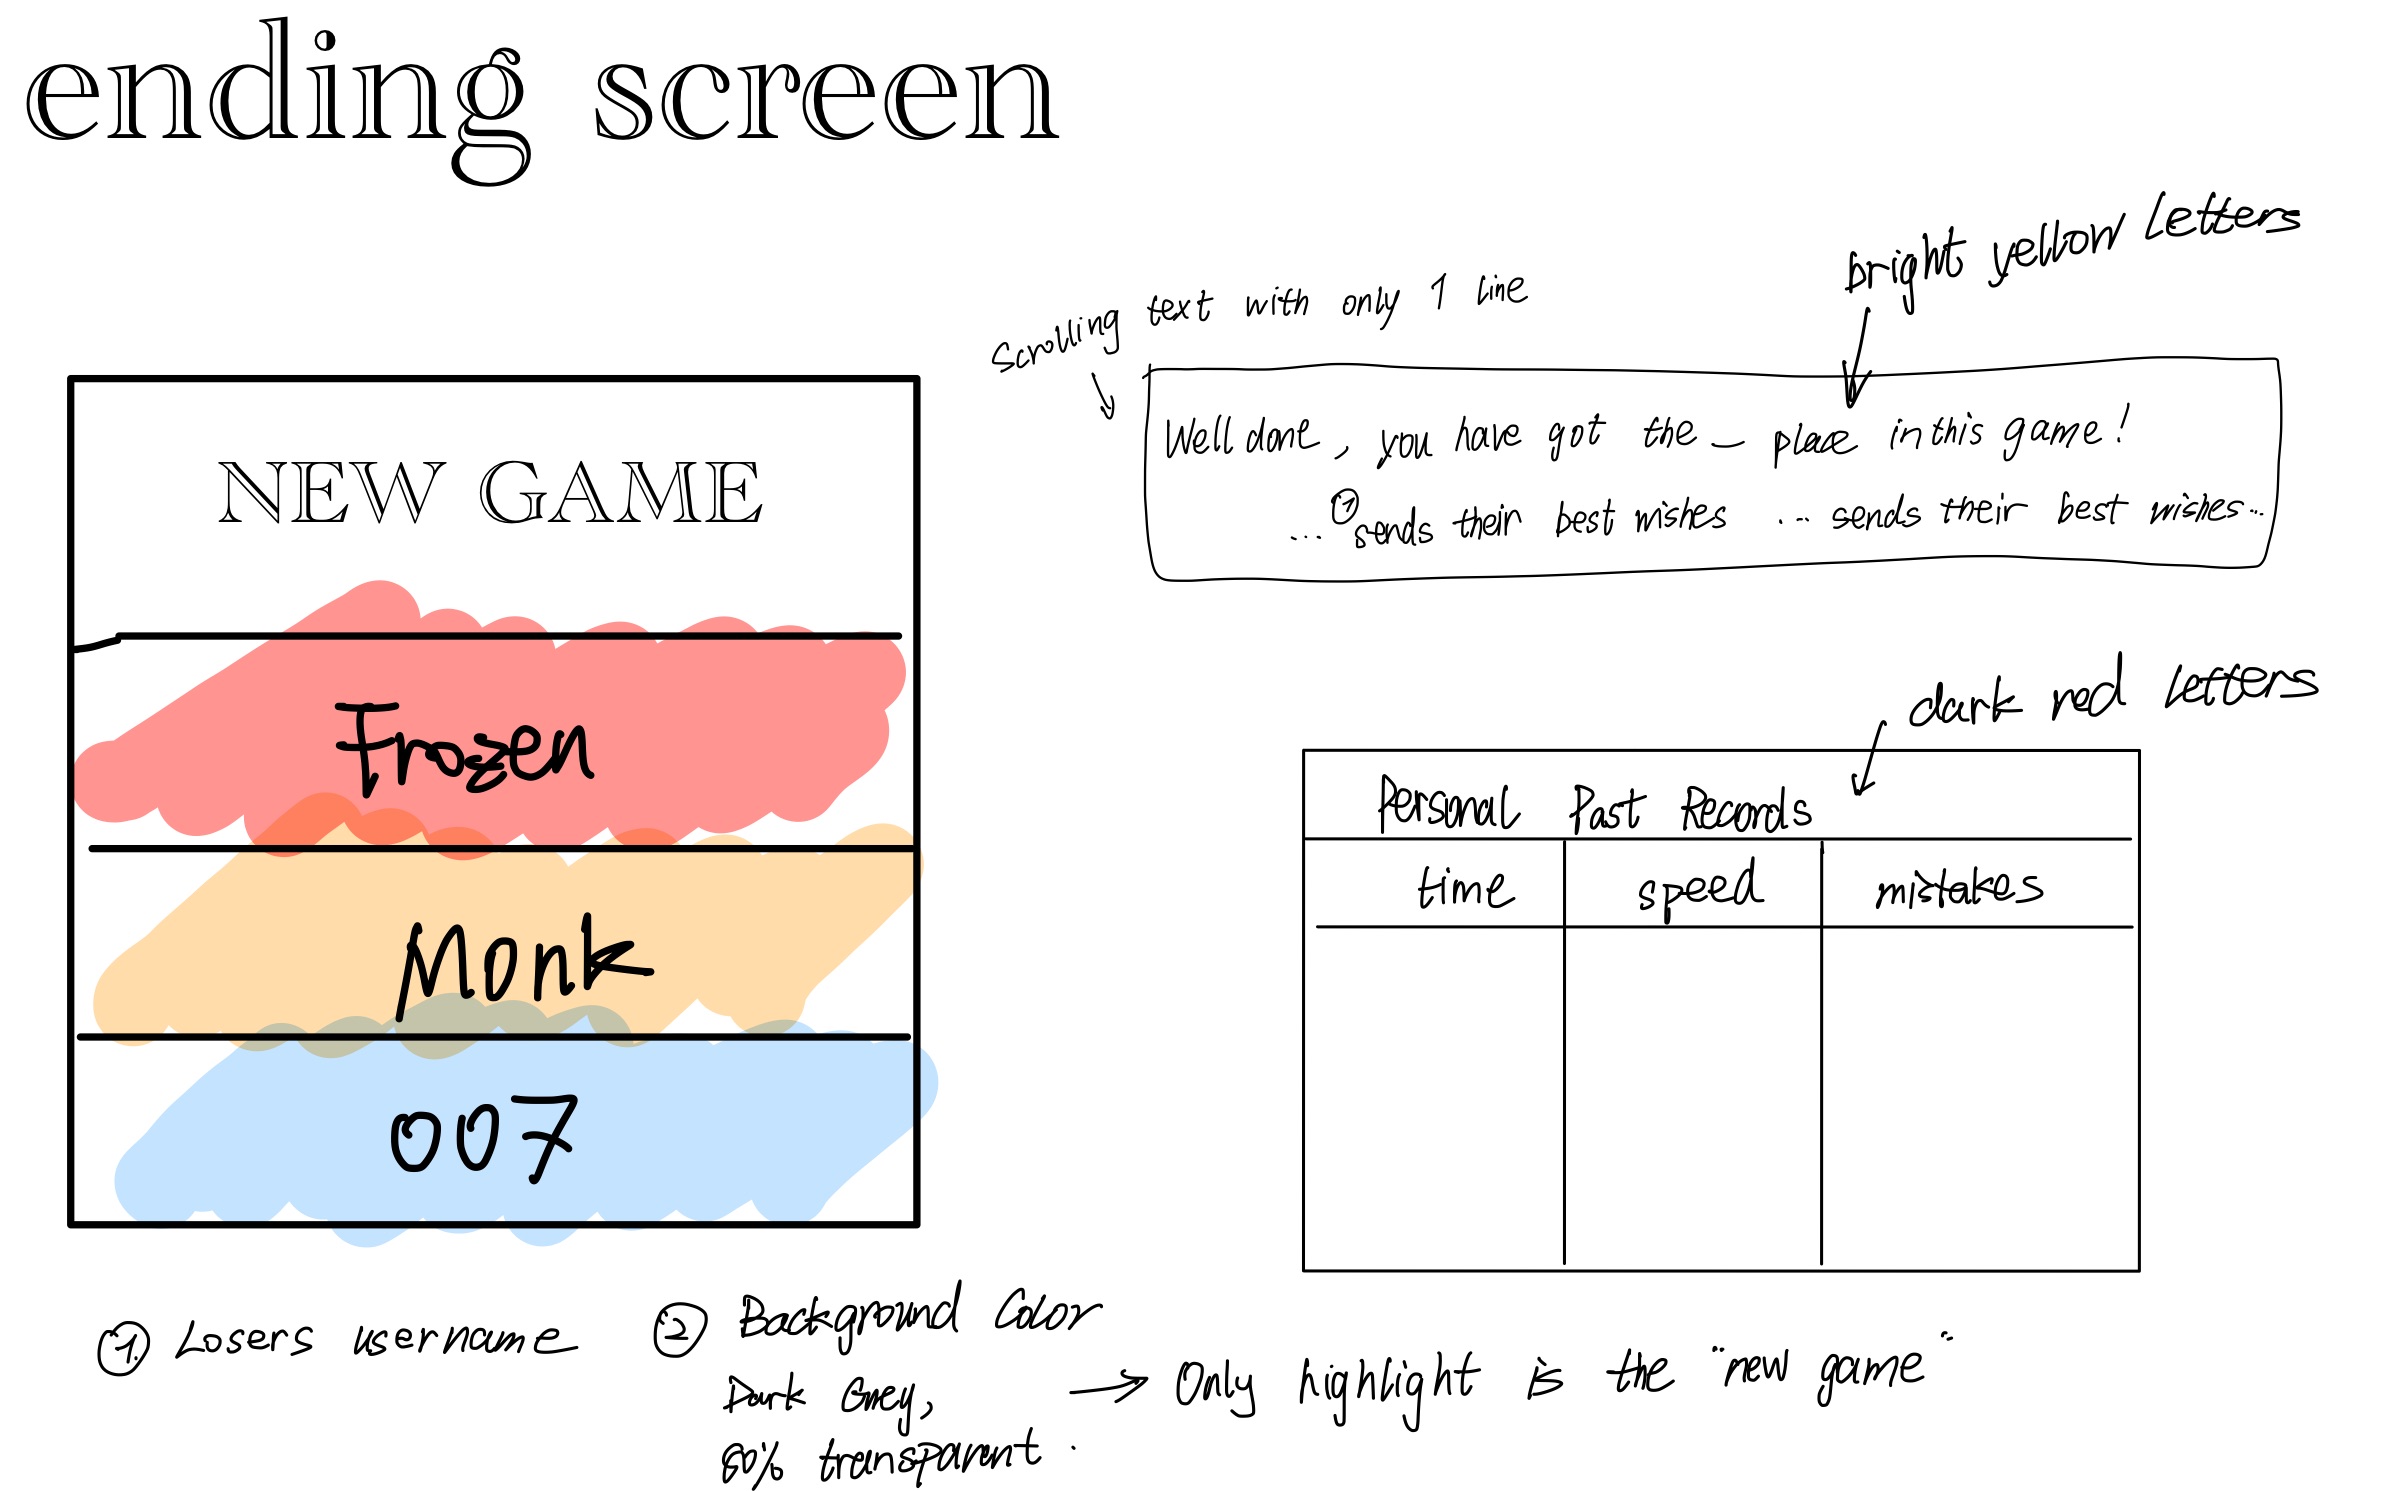 ending screen
bright yellow letters
Scrolling text with only 1 line
Well done, you have got the _ place in this game!
... ① sends their best wishes ... sends their best wishes...
NEW GAME
Frozen
Monk
007
dark red letters
Personal Past Records
time speed mistakes
① Losers username
② Background Color
Dark Grey,
% transparant.
→ Only highlight is the "new game"